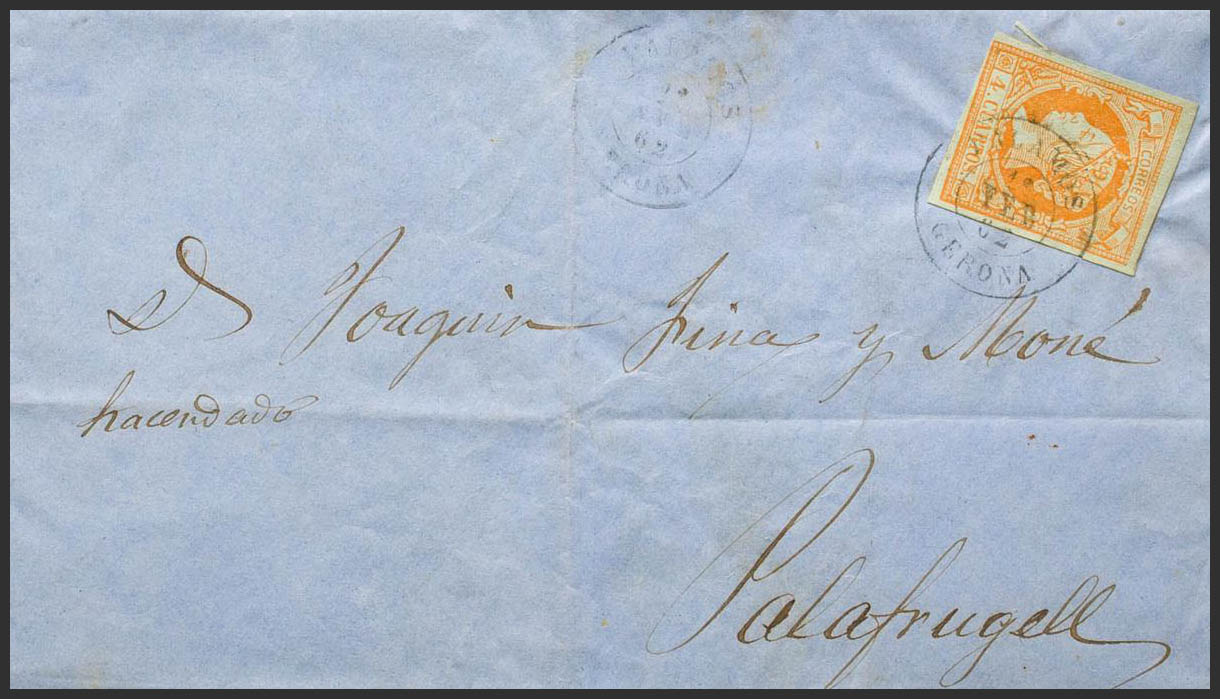 62
4. CUARTOS.
CORREOS
10
FEB
62
GERONA
D. Joaquin Fina y Moné
hacendado
Palafrugell